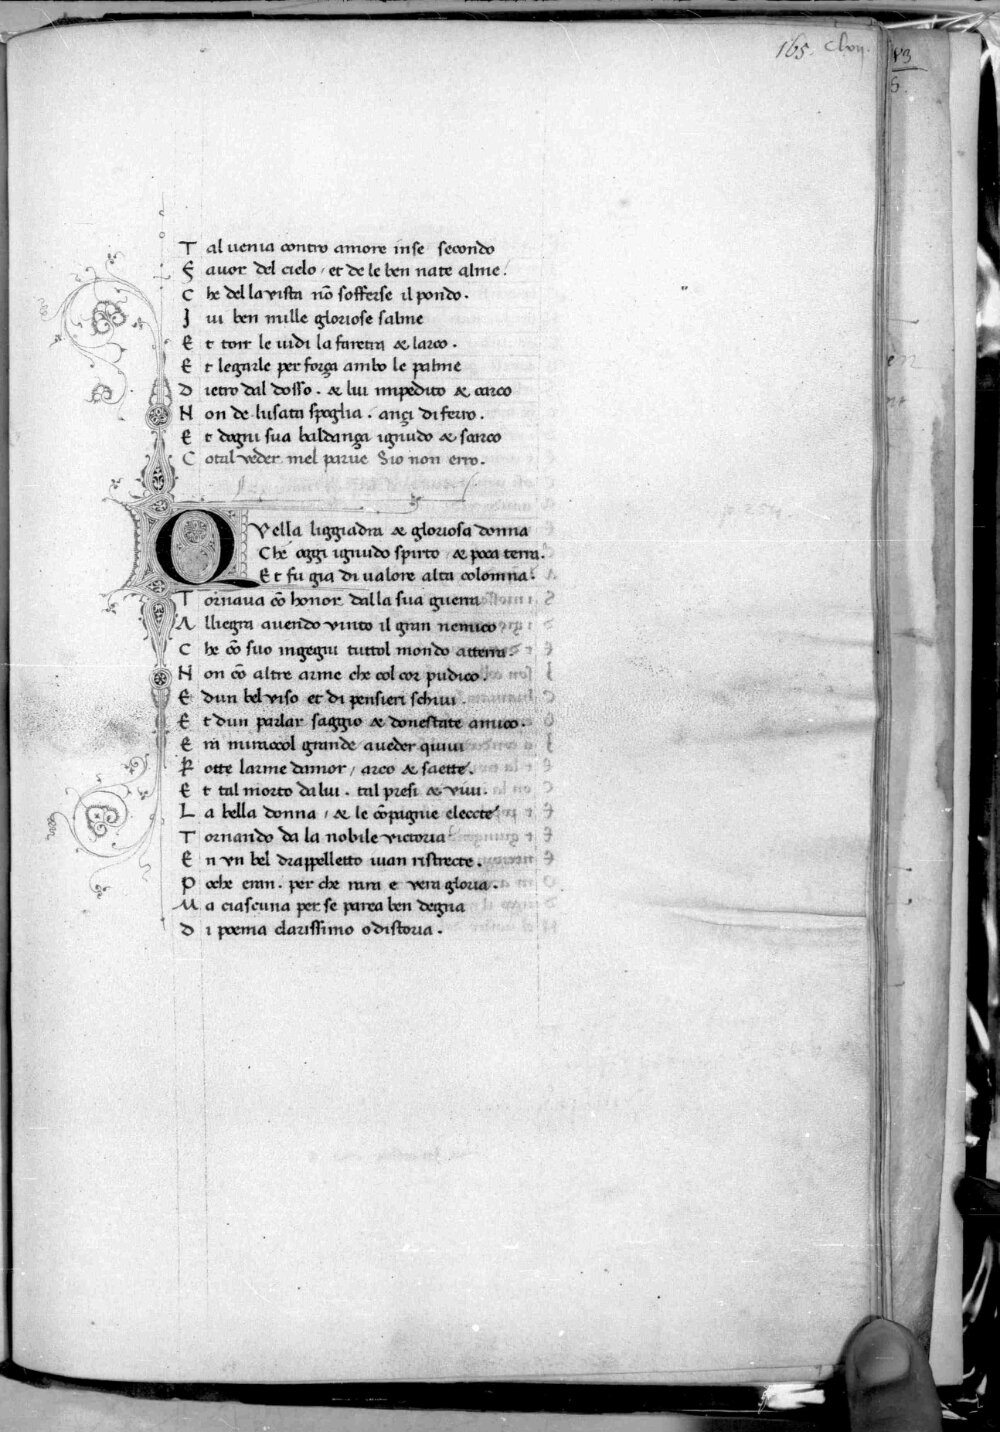 165. clvij.
T al uenia contro amore inse secondo
F auor del cielo / et de le ben nate alme.
C he della vista nõ sofferse il pondo.
J ui ben mille gloriose salme
E t torr le uidi la faretra & larco.
E t legarle per forza ambo le palme
D ietro dal dosso. & lui impedito & carco
N on de lusata spoglia. anzi di ferro.
E t dogni sua baldanza ignudo & scarco
C otal veder mel parue Sio non erro.
Q Vella liggiadra & gloriosa donna
Che oggi ignudo spirto / & poca terra.
Et fu gia di ualore alta colomna.
T ornaua cõ honor dalla sua guerra
A lliegra auendo vinto il gran nemico
C he cõ suo ingegni tuttol mondo atterra.
N on cõ altre arme che col cor pudico.
E dun bel viso et di pensieri schiui.
E t dun parlar saggio & donestate amico.
E ra miracol grande aueder quiui
R otte larme damor / arco & saette.
E t tal morto da lui. tal presi & viui.
L a bella donna / & le cõpagne elecete
T ornando da la nobile victoria
E n vn bel drappelletto iuan ristrecte.
P oche eran. per che rara e vera gloria.
M a ciascuna per se parea ben degna
D i poema clarissimo o distoria.